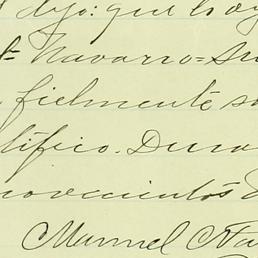 dijo: que lo oy
Navarro = Su
fielmente su
tífico. Duran
novecientos
Manuel Na